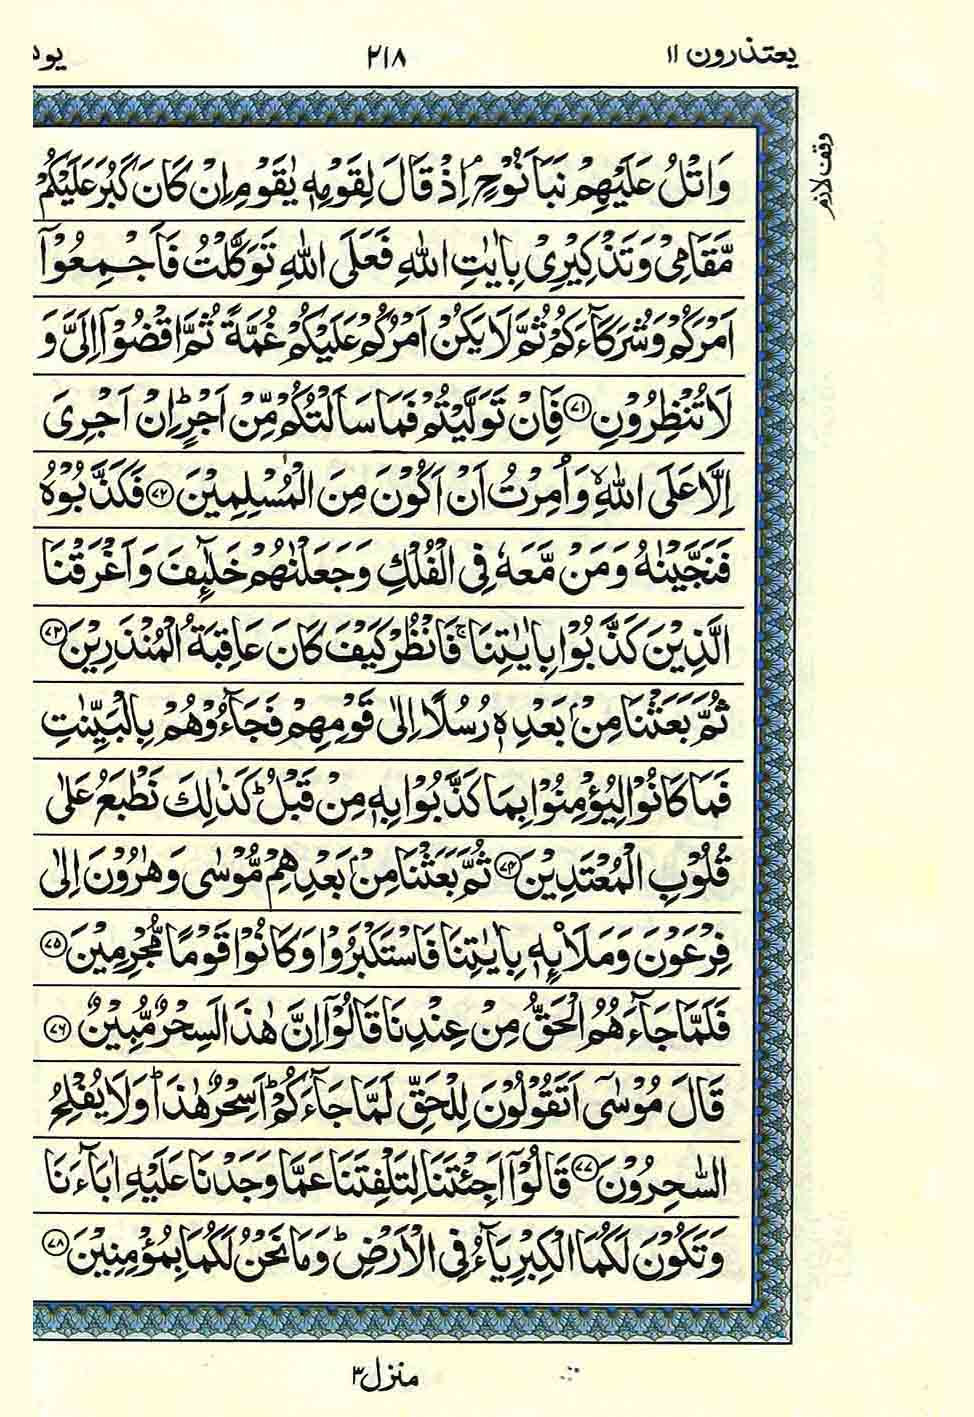 یعتذرون ۱۱
۲۱۸
وقف لازم
وَاتْلُ عَلَيْهِمْ نَبَاَ نُوْحٍۘ اِذْ قَالَ لِقَوْمِهٖ يٰقَوْمِ اِنْ كَانَ كَبُرَ عَلَيْكُمْ
مَّقَامِیْ وَتَذْكِيْرِیْ بِاٰيٰتِ اللّٰهِ فَعَلَی اللّٰهِ تَوَكَّلْتُ فَاَجْمِعُوْۤا
اَمْرَكُمْ وَشُرَكَآءَكُمْ ثُمَّ لَا يَكُنْ اَمْرُكُمْ عَلَيْكُمْ غُمَّةً ثُمَّ اقْضُوْۤا اِلَیَّ وَ
لَا تُنْظِرُوْنِ ﴿۷۱﴾ فَاِنْ تَوَلَّيْتُمْ فَمَا سَاَلْتُكُمْ مِّنْ اَجْرٍ ؕ اِنْ اَجْرِیَ
اِلَّا عَلَی اللّٰهِ ۙ وَاُمِرْتُ اَنْ اَكُوْنَ مِنَ الْمُسْلِمِيْنَ ﴿۷۲﴾ فَكَذَّبُوْهُ
فَنَجَّيْنٰهُ وَمَنْ مَّعَهٗ فِی الْفُلْكِ وَجَعَلْنٰهُمْ خَلٰٓئِفَ وَاَغْرَقْنَا
الَّذِيْنَ كَذَّبُوْا بِاٰيٰتِنَا ۚ فَانْظُرْ كَيْفَ كَانَ عَاقِبَةُ الْمُنْذَرِيْنَ ﴿۷۳﴾
ثُمَّ بَعَثْنَا مِنْۢ بَعْدِهٖ رُسُلًا اِلٰی قَوْمِهِمْ فَجَآءُوْهُمْ بِالْبَيِّنٰتِ
فَمَا كَانُوْا لِيُؤْمِنُوْا بِمَا كَذَّبُوْا بِهٖ مِنْ قَبْلُ ؕ كَذٰلِكَ نَطْبَعُ عَلٰی
قُلُوْبِ الْمُعْتَدِيْنَ ﴿۷۴﴾ ثُمَّ بَعَثْنَا مِنْۢ بَعْدِهِمْ مُّوْسٰی وَهٰرُوْنَ اِلٰی
فِرْعَوْنَ وَمَلَا۟ئِهٖ بِاٰيٰتِنَا فَاسْتَكْبَرُوْا وَكَانُوْا قَوْمًا مُّجْرِمِيْنَ ﴿۷۵﴾
فَلَمَّا جَآءَهُمُ الْحَقُّ مِنْ عِنْدِنَا قَالُوْۤا اِنَّ هٰذَا لَسِحْرٌ مُّبِيْنٌ ﴿۷۶﴾
قَالَ مُوْسٰۤی اَتَقُوْلُوْنَ لِلْحَقِّ لَمَّا جَآءَكُمْ ؕ اَسِحْرٌ هٰذَا ؕ وَلَا يُفْلِحُ
السّٰحِرُوْنَ ﴿۷۷﴾ قَالُوْۤا اَجِئْتَنَا لِتَلْفِتَنَا عَمَّا وَجَدْنَا عَلَيْهِ اٰبَآءَنَا
وَتَكُوْنَ لَكُمَا الْكِبْرِيَآءُ فِی الْاَرْضِ ؕ وَمَا نَحْنُ لَكُمَا بِمُؤْمِنِيْنَ ﴿۷۸﴾
منزل ۳